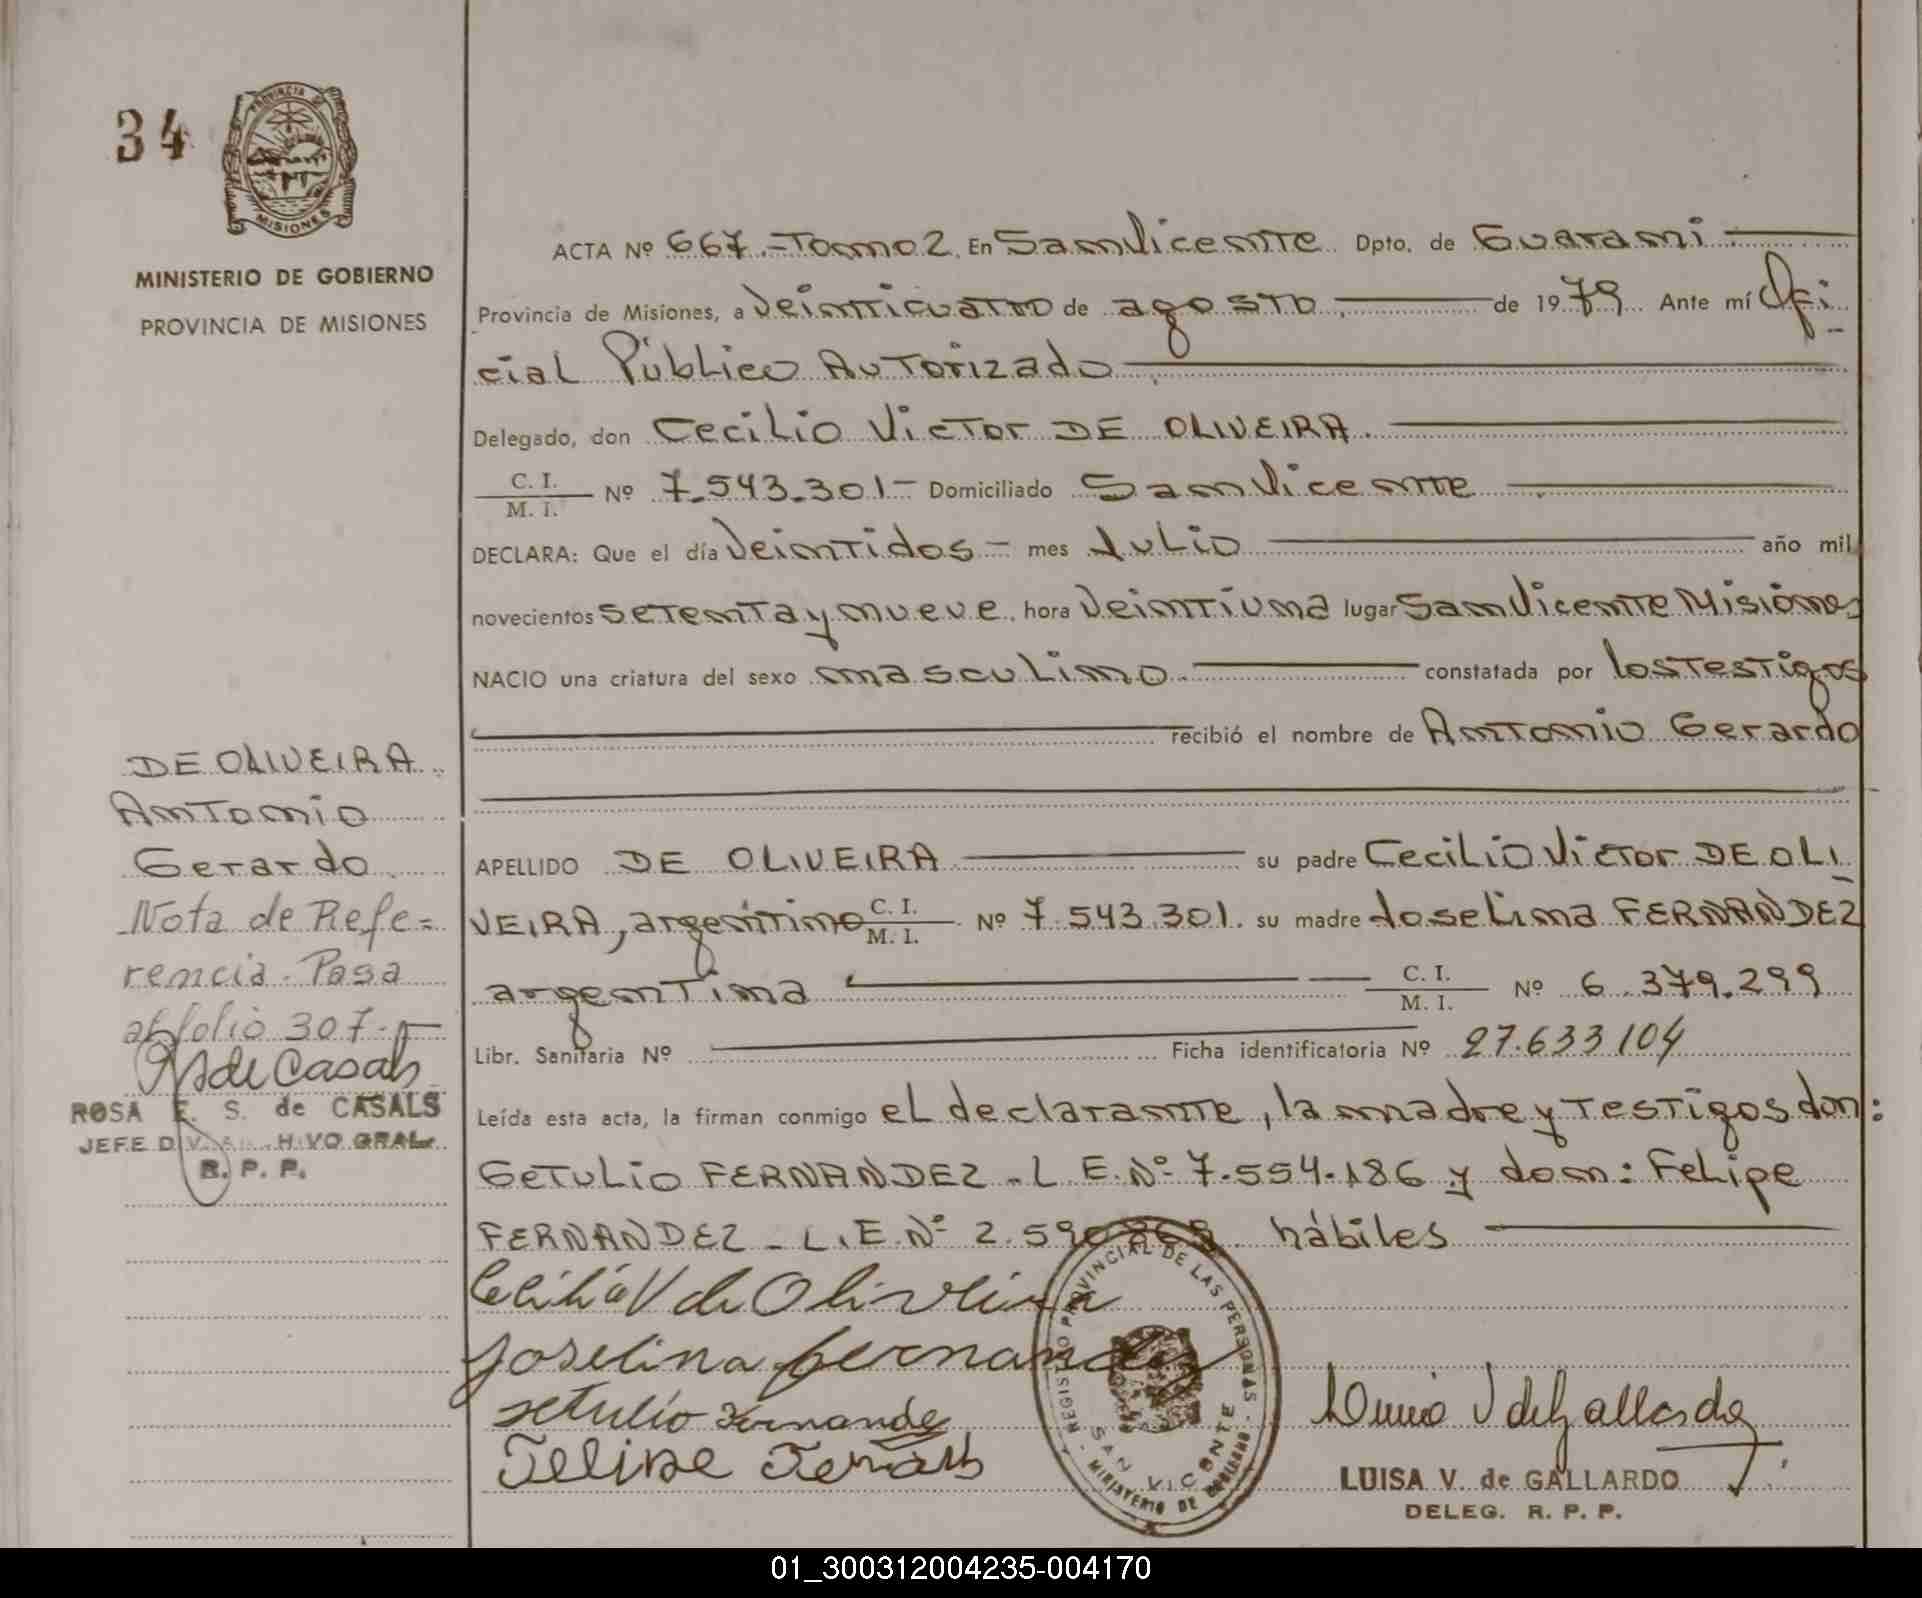 34
PROVINCIA DE
MISIONES
MINISTERIO DE GOBIERNO
PROVINCIA DE MISIONES
ACTA Nº 667.-Tomo 2. En San Vicente Dpto. de Guarani
Provincia de Misiones, a Veinticuatro de agosto de 1979 Ante mí Ofi-
cial Público Autorizado
Delegado, don Cecilio Victor DE OLIVEIRA.
C. I.
M. I. Nº 7.543.301- Domiciliado San Vicente
DECLARA: Que el día Veintidos - mes Julio año mil
novecientos setenta y nueve. hora Veintiuna lugar San Vicente Misiones
NACIO una criatura del sexo masculino. constatada por los testigos
recibió el nombre de Antonio Gerardo
DE OLIVEIRA.
Antonio
Gerardo.
Nota de Refe=
rencia. Pasa
al folio 307.-
RSde Casals
ROSA E. S. de CASALS
JEFE DIV. A. HIVO GRAL.
R. P. P.
APELLIDO DE OLIVEIRA su padre Cecilio Victor DE OLI-
VEIRA, argentino C. I. / M. I. Nº 7.543.301. su madre Joselina FERNANDEZ
argentina C. I. / M. I. Nº 6.379.299
Libr. Sanitaria Nº Ficha identificatoria Nº 27.633104
Leída esta acta, la firman conmigo el declarante, la madre y testigos don:
Getulio FERNANDEZ - L.E.Nº 7.554.186 y don: Felipe
FERNANDEZ - L.E.Nº 2.590 hábiles
Cecilio V de Oliveira
Joselina fernandez
Getulio Fernandez
Felipe
REGISTRO PROVINCIAL DE LAS PERSONAS
SAN VICENTE
MINISTERIO DE GOBIERNO
Luisa V de Gallardo
LUISA V. de GALLARDO
DELEG. R. P. P.
01_300312004235-004170